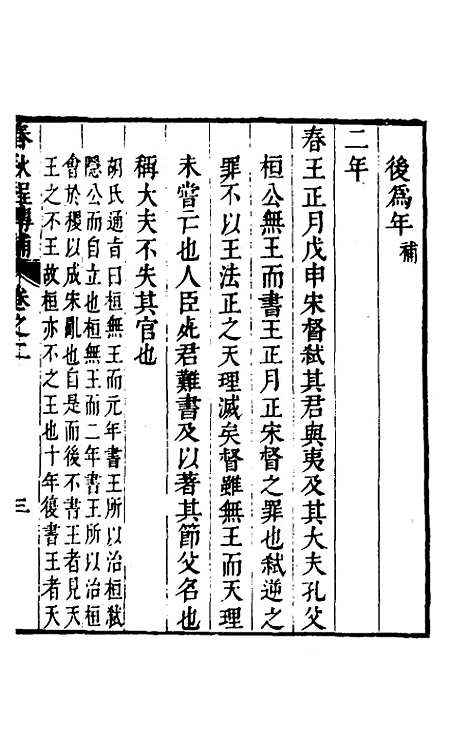 後爲年補
二年
春王正月戊申宋督弑其君與夷及其大夫孔父
桓公無王而書王正月正宋督之罪也弑逆之
罪不以王法正之天理滅矣督雖無王而天理
未嘗亡也人臣死君難書及以著其節父名也
稱大夫不失其官也
胡氏通旨曰桓無王而元年書王所以治桓弑
隱公而自立也桓無王而二年書王所以治桓
會於稷以成宋亂也自是而後不書王者見天
王之不王故桓亦不之王也十年復書王者天
春秋程傳補 卷之二 三